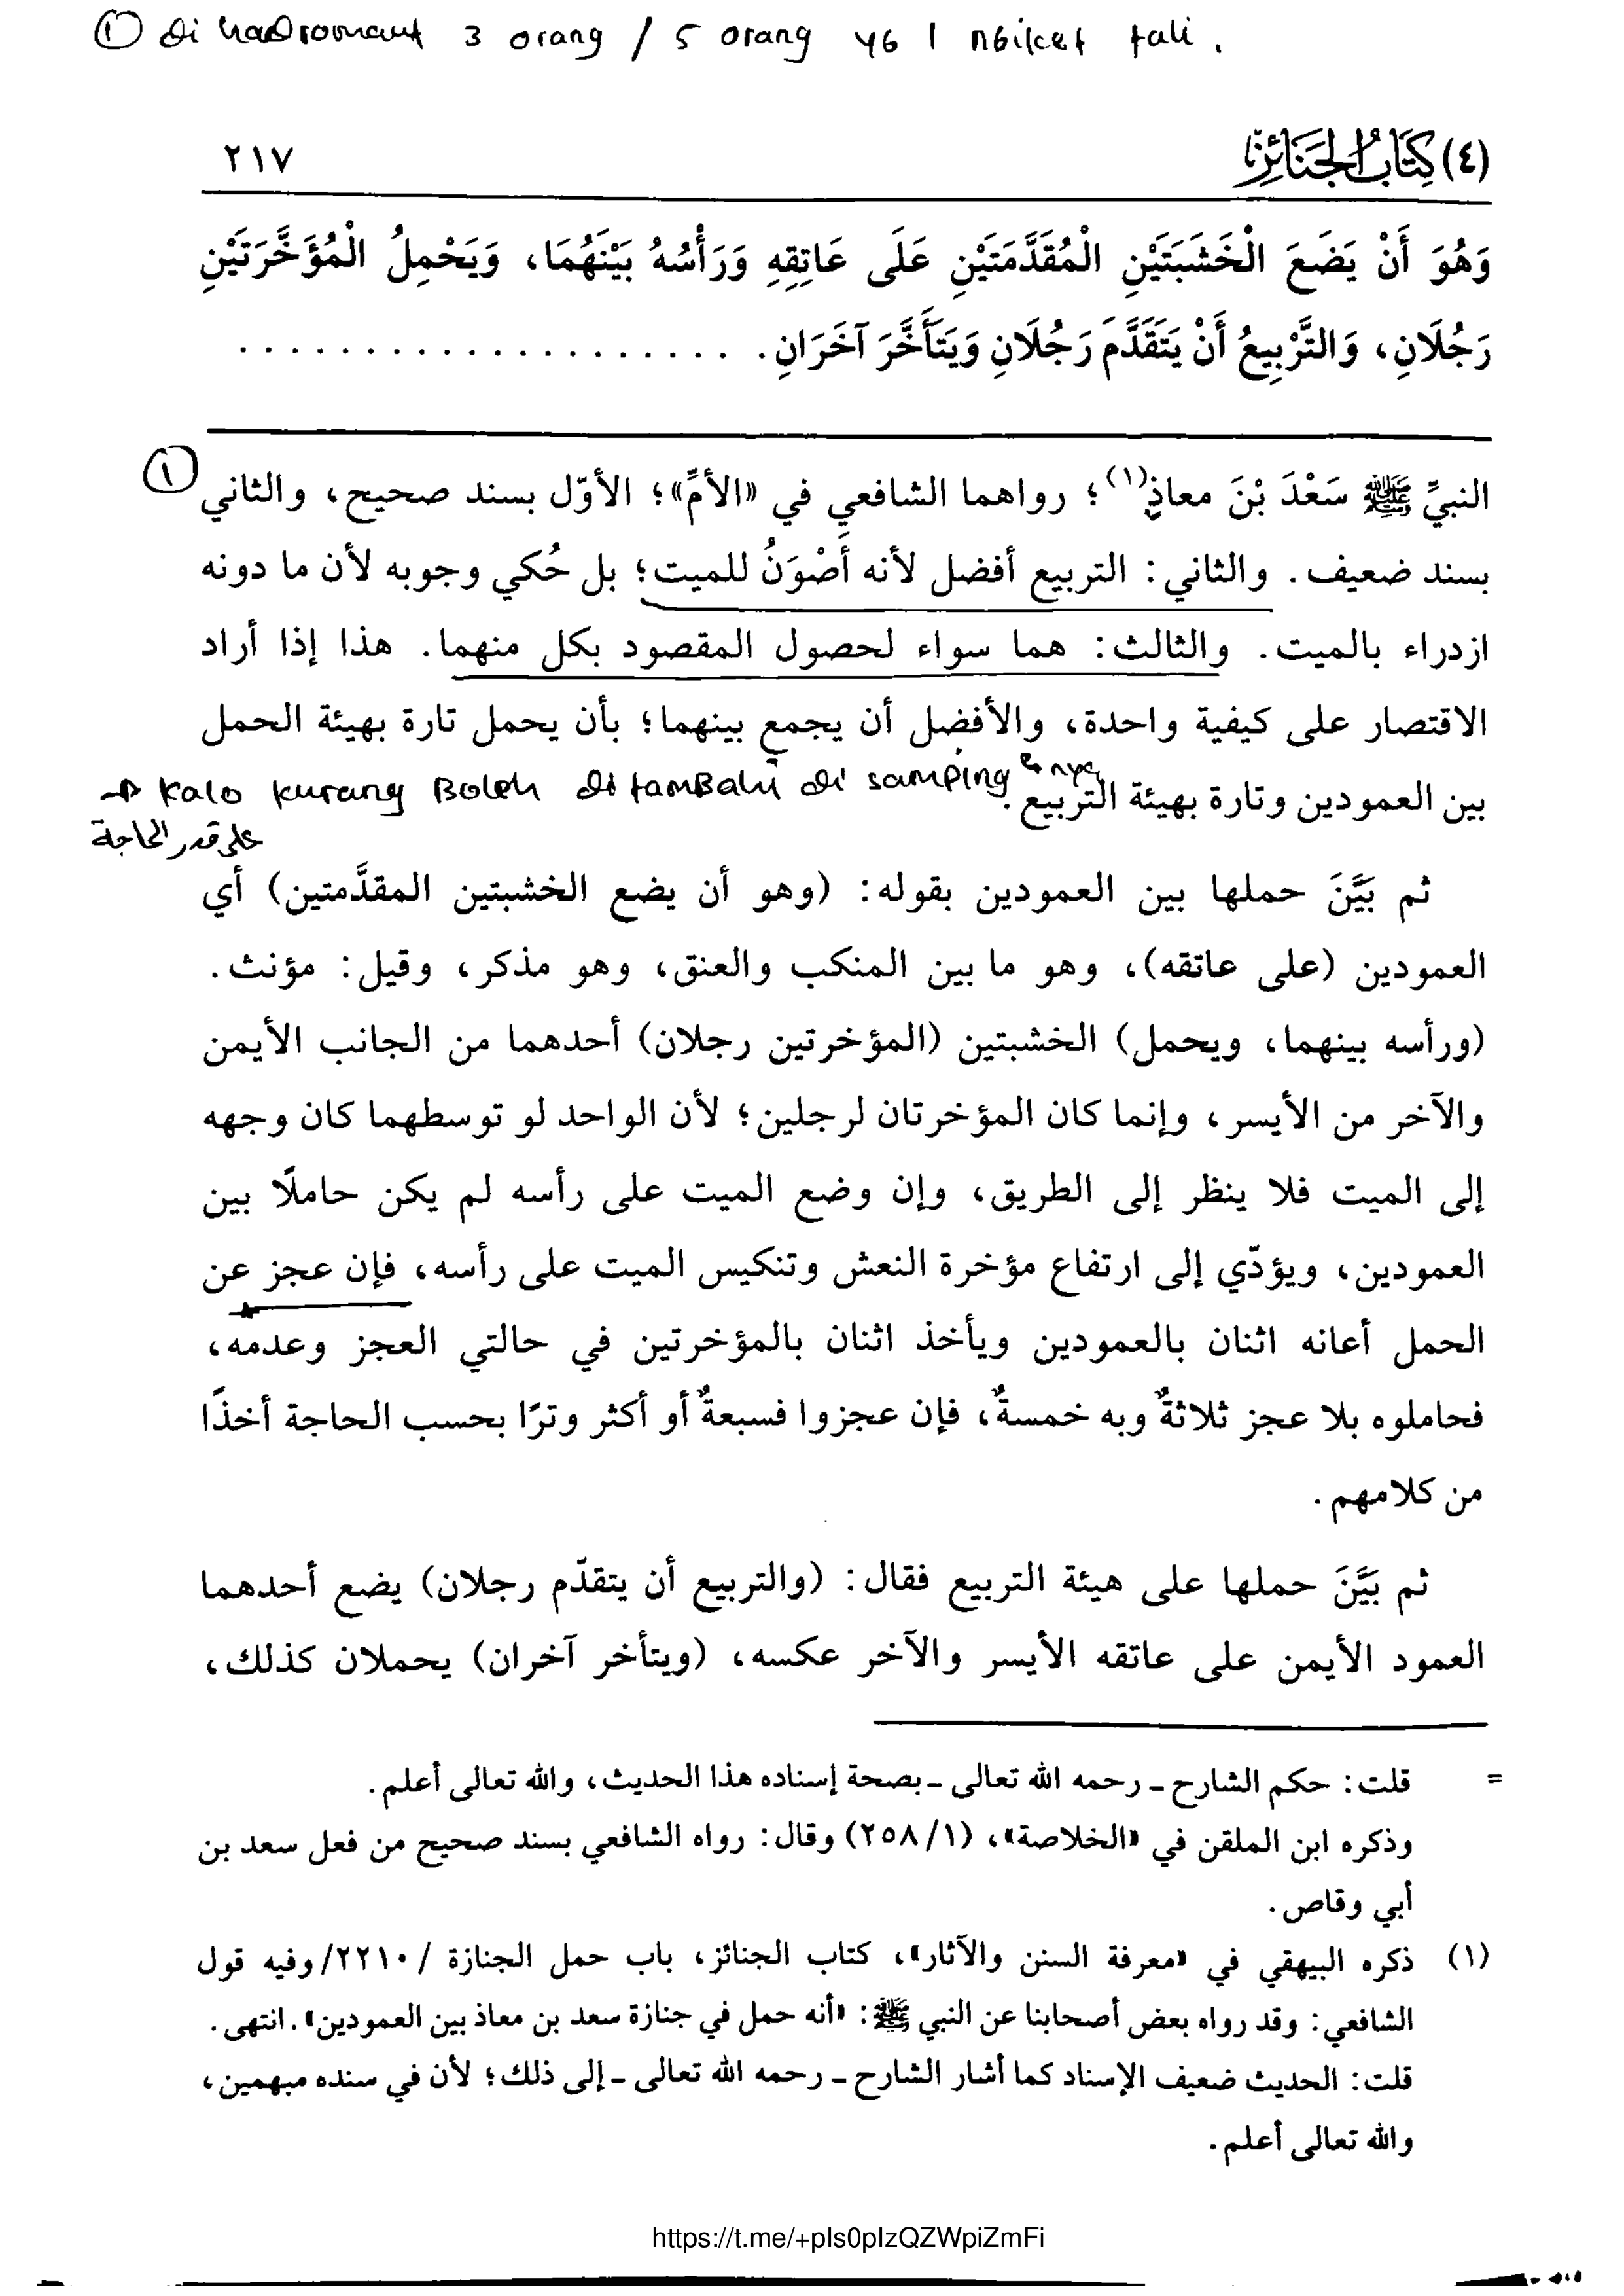 ① di hadromaut 3 orang / 5 orang yg 1 ngiket tali.
(٤) كِتَابُ الجَنَائِزِ ٢١٧
وَهُوَ أَنْ يَضَعَ الْخَشَبَتَيْنِ الْمُقَدَّمَتَيْنِ عَلَى عَاتِقِهِ وَرَأْسُهُ بَيْنَهُمَا، وَيَحْمِلُ الْمُؤَخَّرَتَيْنِ
رَجُلَانِ، وَالتَّرْبِيعُ أَنْ يَتَقَدَّمَ رَجُلَانِ وَيَتَأَخَّرَ آخَرَانِ. . . . . . . . . . . . . . . . . . . . .
النبيِّ ﷺ سَعْدَ بْنَ معاذٍ(١)؛ رواهما الشافعي في «الأمِّ»؛ الأوّل بسند صحيح، والثاني ①
بسند ضعيف. والثاني: التربيع أفضل لأنه أَصْوَنُ للميت؛ بل حُكي وجوبه لأن ما دونه
ازدراء بالميت. والثالث: هما سواء لحصول المقصود بكل منهما. هذا إذا أراد
الاقتصار على كيفية واحدة، والأفضل أن يجمع بينهما؛ بأن يحمل تارة بهيئة الحمل
بين العمودين وتارة بهيئة التربيع.
→ kalo kurang Boleh ditambahi di samping nya
على قدر الحاجة
ثم بَيَّنَ حملها بين العمودين بقوله: (وهو أن يضع الخشبتين المقدَّمتين) أي
العمودين (على عاتقه)، وهو ما بين المنكب والعنق، وهو مذكر، وقيل: مؤنث.
(ورأسه بينهما، ويحمل) الخشبتين (المؤخرتين رجلان) أحدهما من الجانب الأيمن
والآخر من الأيسر، وإنما كان المؤخرتان لرجلين؛ لأن الواحد لو توسطهما كان وجهه
إلى الميت فلا ينظر إلى الطريق، وإن وضع الميت على رأسه لم يكن حاملًا بين
العمودين، ويؤدّي إلى ارتفاع مؤخرة النعش وتنكيس الميت على رأسه، فإن عجز عن
الحمل أعانه اثنان بالعمودين ويأخذ اثنان بالمؤخرتين في حالتي العجز وعدمه،
فحاملوه بلا عجز ثلاثةٌ وبه خمسةٌ، فإن عجزوا فسبعةٌ أو أكثر وترًا بحسب الحاجة أخذًا
من كلامهم.
ثم بَيَّنَ حملها على هيئة التربيع فقال: (والتربيع أن يتقدّم رجلان) يضع أحدهما
العمود الأيمن على عاتقه الأيسر والآخر عكسه، (ويتأخر آخران) يحملان كذلك،
= قلت: حكم الشارح ـ رحمه الله تعالى ـ بصحة إسناده هذا الحديث، والله تعالى أعلم.
وذكره ابن الملقن في «الخلاصة»، (٢٥٨/١) وقال: رواه الشافعي بسند صحيح من فعل سعد بن
أبي وقاص.
(١) ذكره البيهقي في «معرفة السنن والآثار»، كتاب الجنائز، باب حمل الجنازة /٢٢١٠/ وفيه قول
الشافعي: وقد رواه بعض أصحابنا عن النبي ﷺ: «أنه حمل في جنازة سعد بن معاذ بين العمودين». انتهى.
قلت: الحديث ضعيف الإسناد كما أشار الشارح ـ رحمه الله تعالى ـ إلى ذلك؛ لأن في سنده مبهمين،
والله تعالى أعلم.
https://t.me/+pIs0pIzQZWpiZmFi